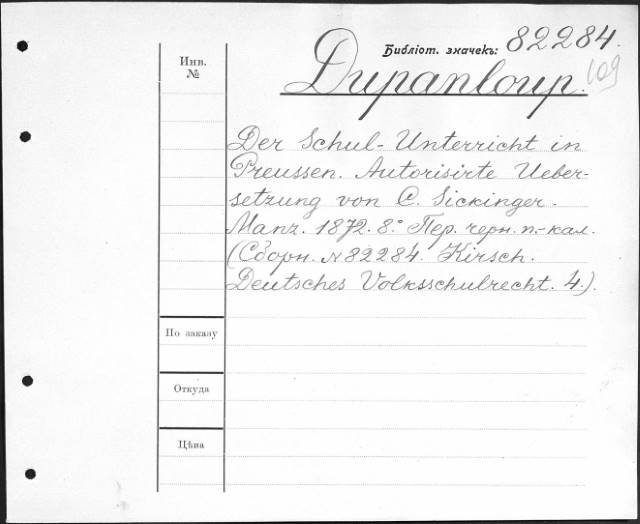 Библіот. значекъ: 82284.
109
Инв.
№
Dupanloup.
Der Schul-Unterricht in
Preussen. Autorisirte Ueber-
setzung von C. Sickinger.
Manz. 1872. 8.° Пер. черн. п.-кал.
(Сборн. № 82284. Kirsch.
Deutsches Volksschulrecht. 4.).
По заказу
Откуда
Цѣна